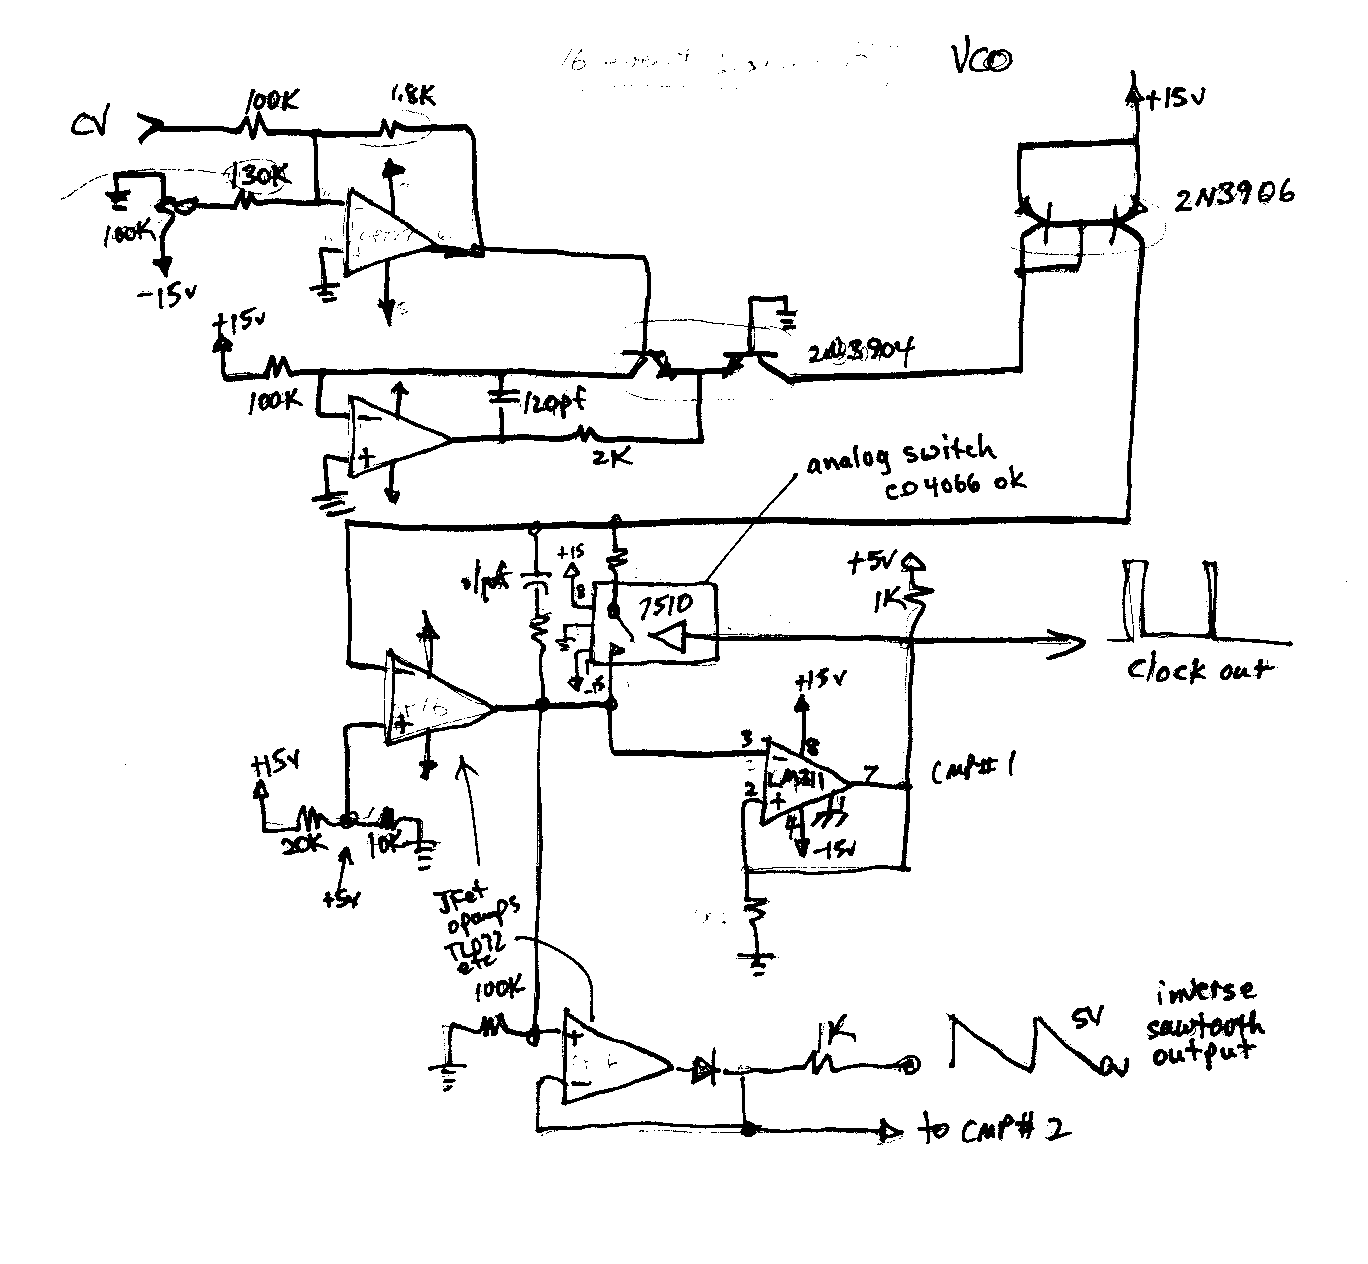 VCO
CV
100K
1.8K
130K
100K
-15v
+15v
2N3906
+15v
100K
120pf
2K
2N3904
analog switch
CD4066 ok
+15
8
7510
-15
+5v
1K
Clock out
+15v
3
8
2
LM311
7
4
1
-15v
CMP#1
+15v
20K
10K
+5v
JFet
opamps
TL072
etc
100K
+
-
1K
5V
0v
inverse
sawtooth
output
to CMP#2